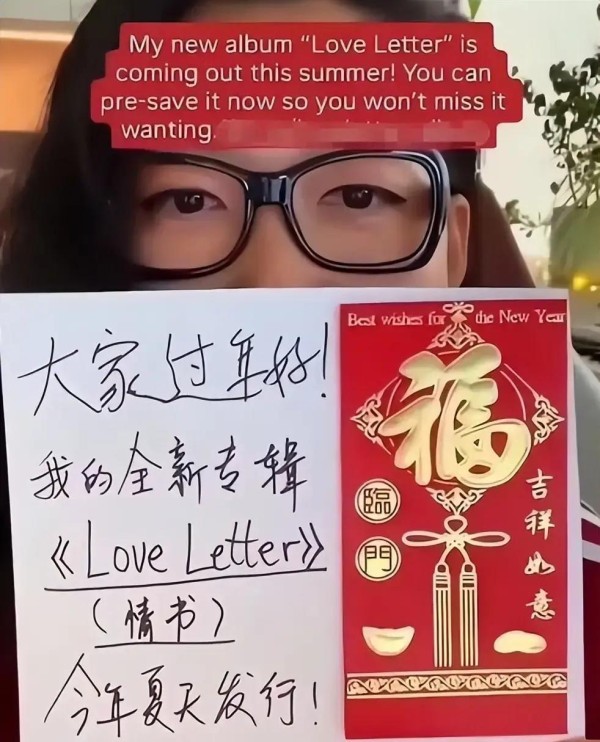 My new album “Love Letter” is
coming out this summer! You can
pre-save it now so you won’t miss it
wanting.
大家过年好!
我的全新专辑
《Love Letter》
(情书)
今年夏天发行!
Best wishes for the New Year
福
臨
門
吉祥如意